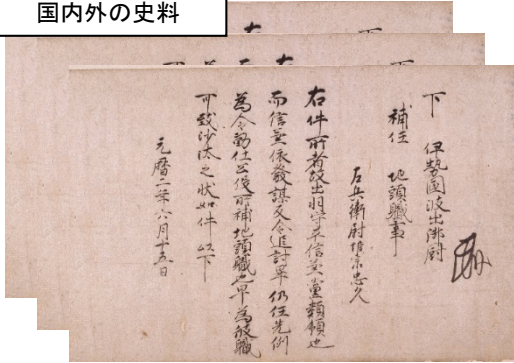 国内外の史料
下 伊勢國波出御厨
補任 地頭職事
左兵衛尉惟宗忠久
右件所者故出羽守平信兼黨類領也
而信兼依發謀反令追討畢仍任先例
為令勤仕公役所補地頭職也早為彼職
可致沙汰之状如件以下
元暦二年六月十五日